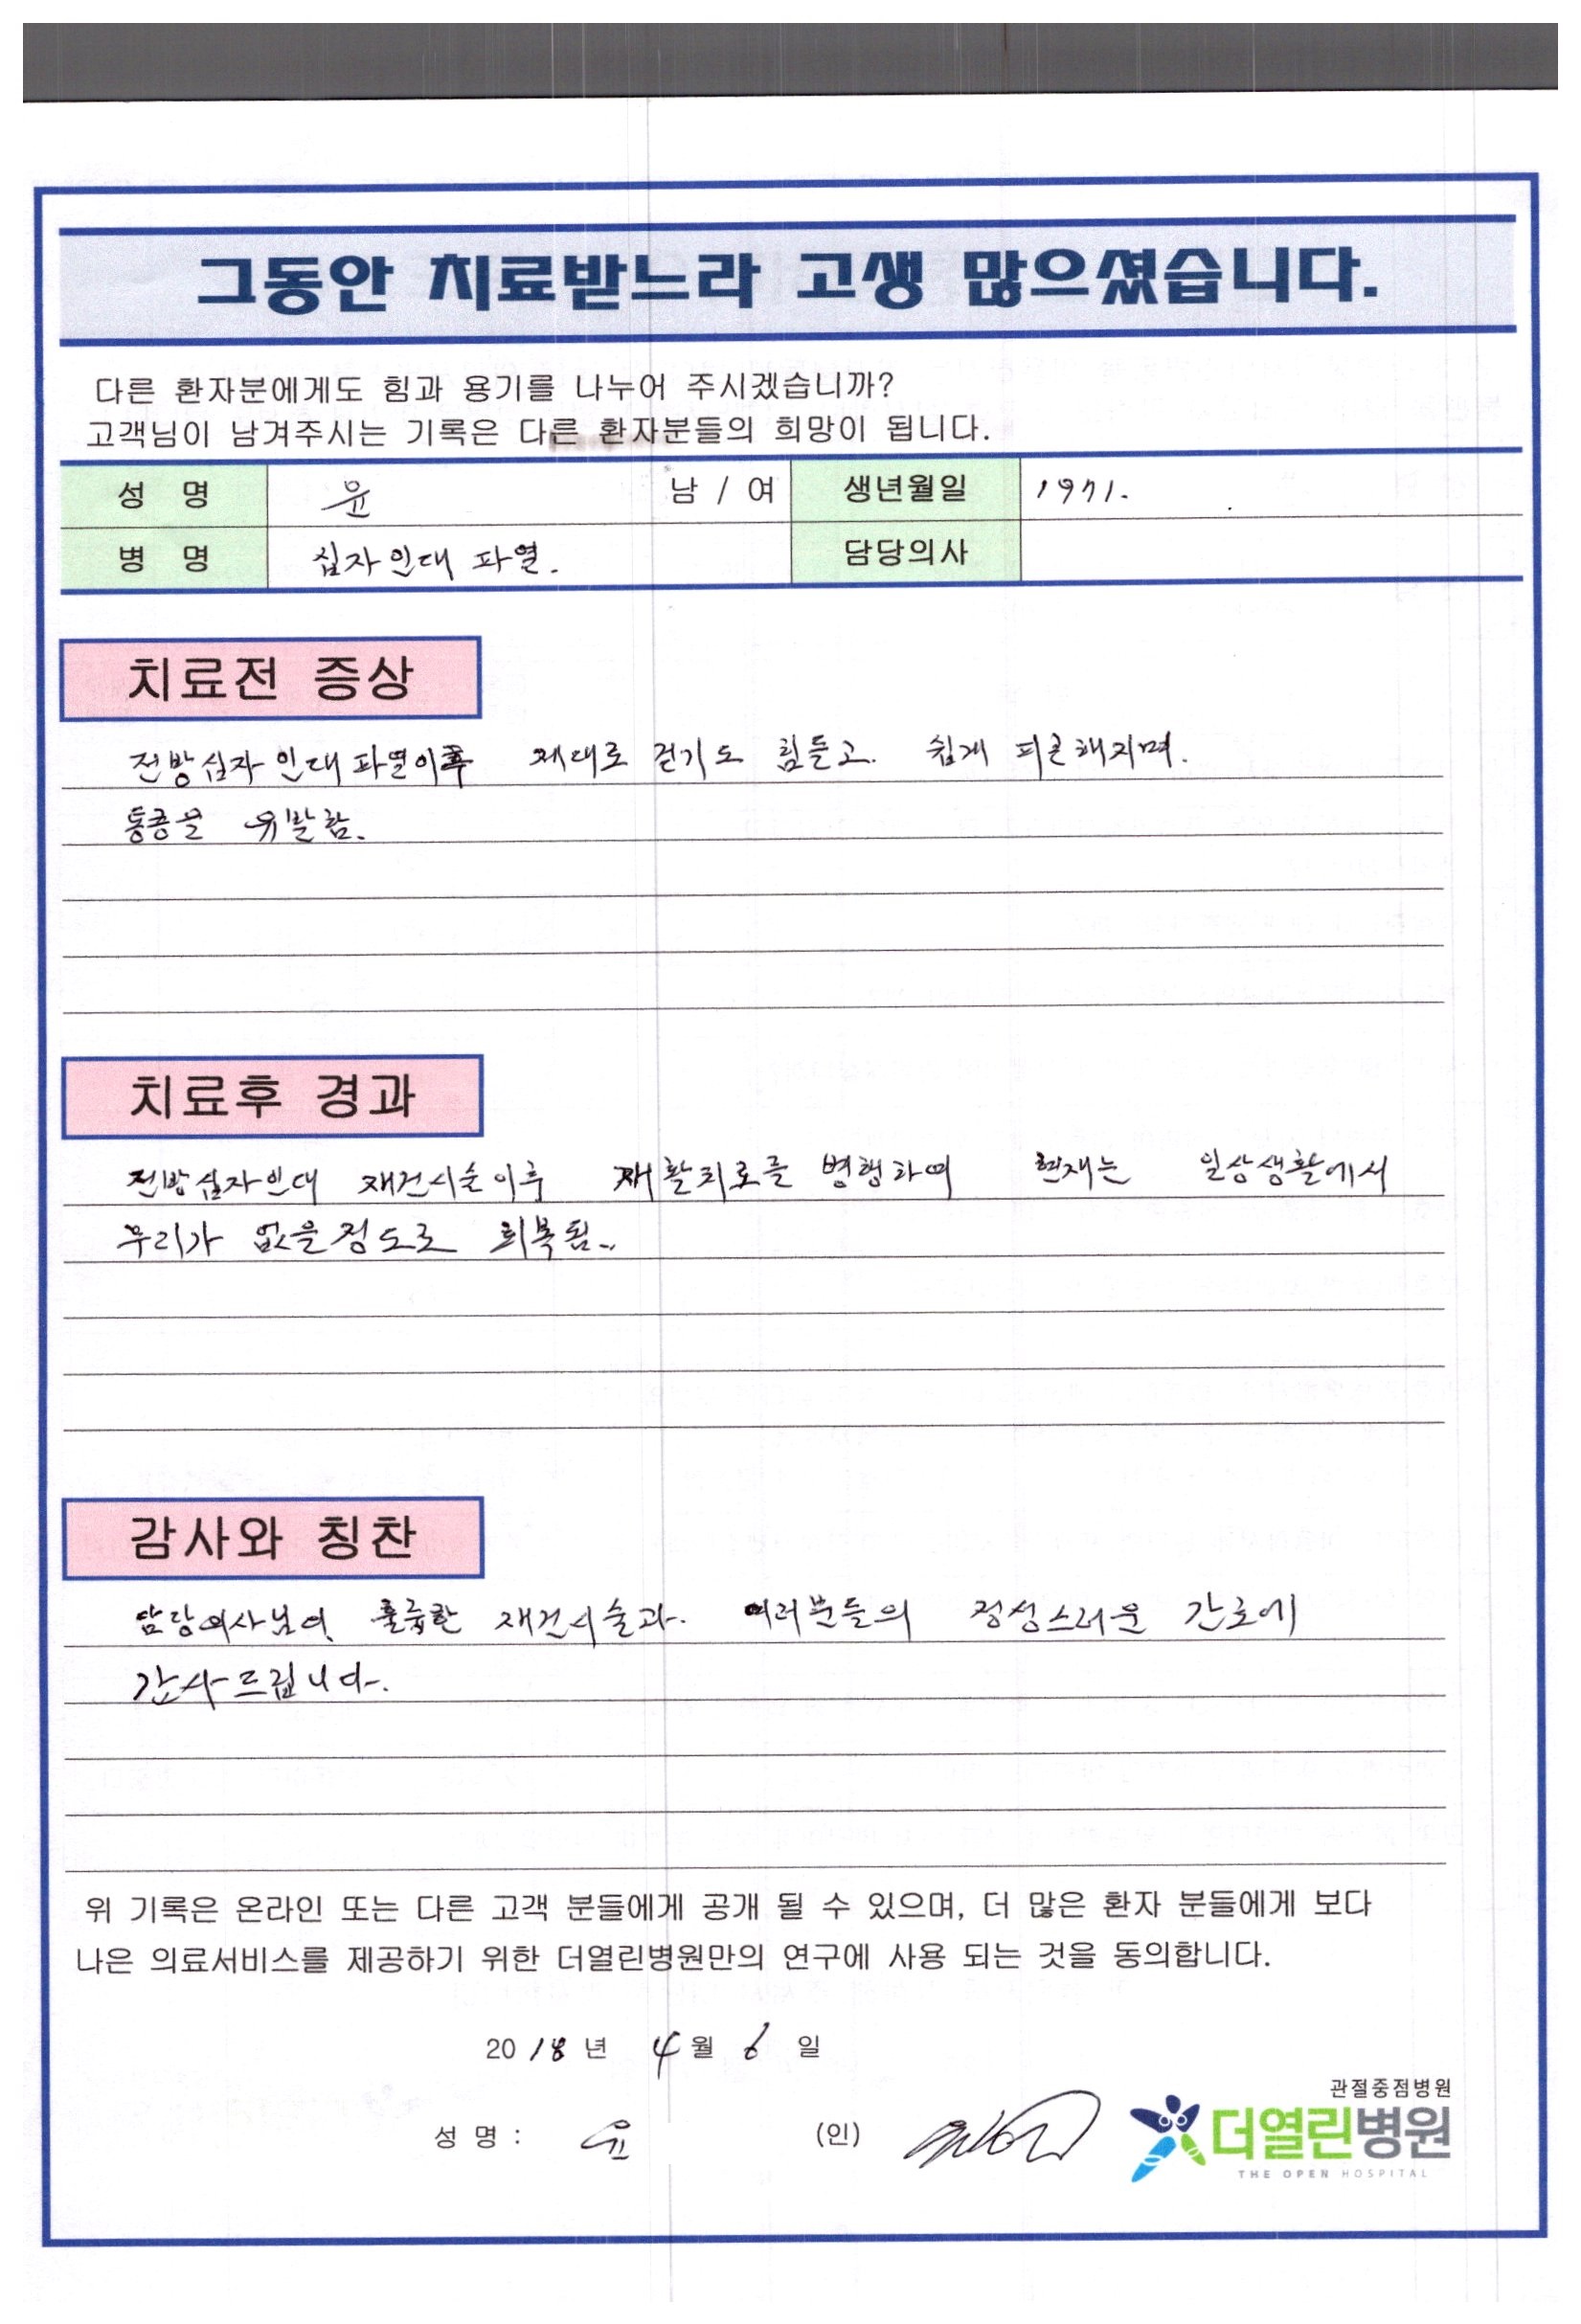 그동안 치료받느라 고생 많으셨습니다.
다른 환자분에게도 힘과 용기를 나누어 주시겠습니까?
고객님이 남겨주시는 기록은 다른 환자분들의 희망이 됩니다.
성 명 윤 남 / 여 생년월일 1971.
병 명 십자인대 파열. 담당의사
치료전 증상
전방십자인대파열이후 제대로 걷기도 힘들고. 쉽게 피곤해지며.
통증을 유발함.
치료후 경과
전방십자인대 재건시술이후 재활치료를 병행하며 현재는 일상생활에서
무리가 없을정도로 회복됨..
감사와 칭찬
담당의사님의 훌륭한 재건시술과. 여러분들의 정성스러운 간호에
감사드립니다.
위 기록은 온라인 또는 다른 고객 분들에게 공개 될 수 있으며, 더 많은 환자 분들에게 보다
나은 의료서비스를 제공하기 위한 더열린병원만의 연구에 사용 되는 것을 동의합니다.
2018년 4월 6일
관절중점병원
성 명 : 윤 (인) 더열린병원
THE OPEN HOSPITAL